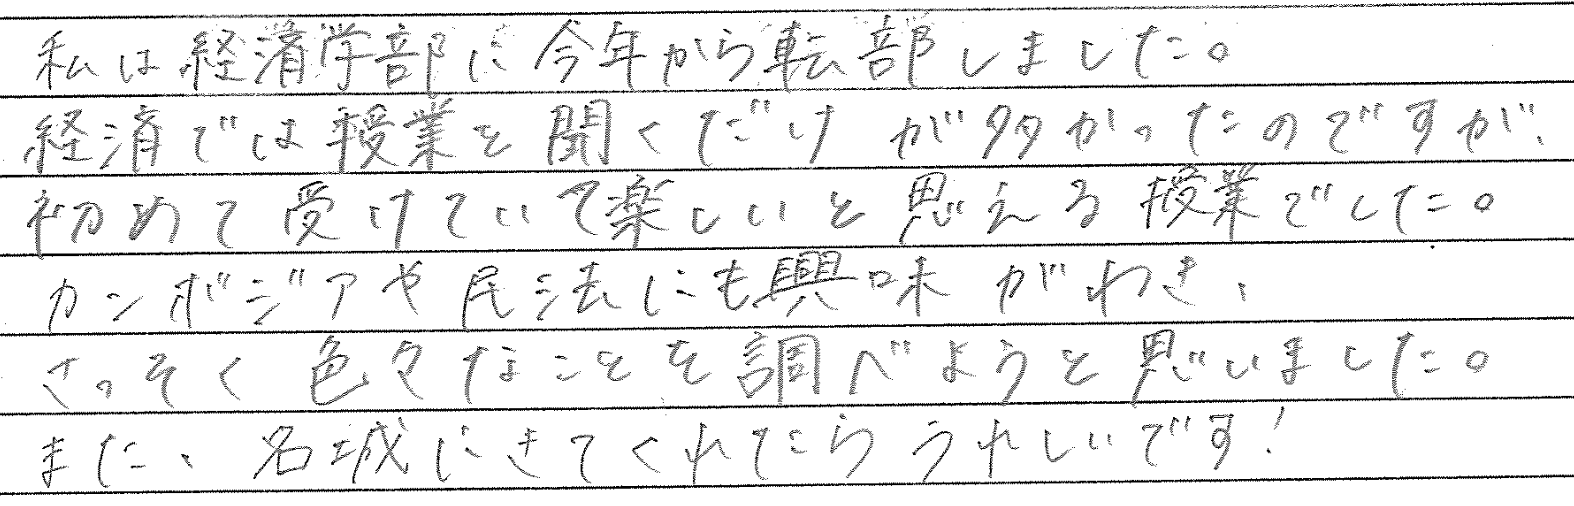 私は経済学部に今年から転部しました。
経済では授業を聞くだけが多かったのですが、
初めて受けていて楽しいと思える授業でした。
カンボジアや民法にも興味がわき、
さっそく色々なことを調べようと思いました。
また、名城にきてくれたらうれしいです!